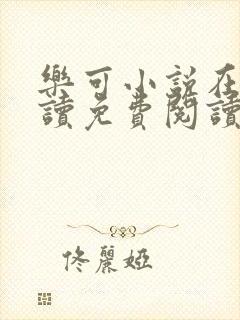 樂可小説在
讀免費閱讀
佟麗婭